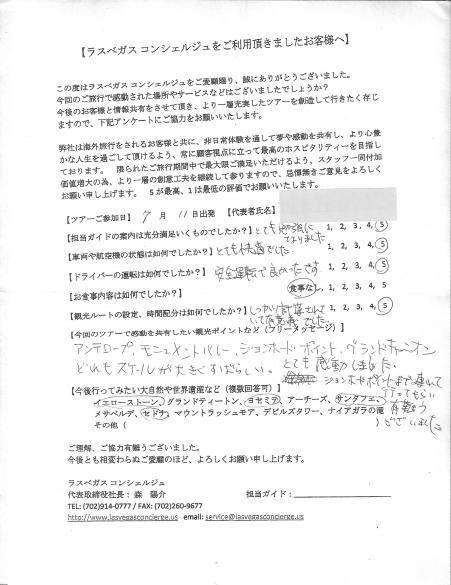 【ラスベガス コンシェルジュをご利用頂きましたお客様へ】
この度はラスベガス コンシェルジュをご愛顧賜り、誠にありがとうございました。
今回のご旅行で感動された場所やサービスなどはございましたでしょうか?
今後のお客様と情報共有をさせて頂き、より一層充実したツアーを創造して行きたく存じ
ますので、下記アンケートにご協力をお願いいたします。
弊社は海外旅行をされるお客様と共に、非日常体験を通して夢や感動を共有し、より心豊
かな人生を過ごして頂けるよう、常に顧客視点に立って最高のホスピタリティーを目指し
ております。 限られたご旅行期間中で最大限ご満足いただけるよう、スタッフ一同付加
価値増大の為、より一層の創意工夫を継続して参りますので、忌憚無きご意見をよろしく
お願い申し上げます。 5が最高、1は最低の評価でお願いいたします。
【ツアーご参加日】 9月 11日出発 【代表者氏名】
【担当ガイドの案内は充分満足いくものでしたか?】とても勉強になりました 1, 2, 3, 4, 5
【車両や航空機の状態は如何でしたか?】とても快適でした 1, 2, 3, 4, 5
【ドライバーの運転は如何でしたか?】安全運転で良かったです 1, 2, 3, 4, 5
【お食事内容は如何でしたか?】 食事なし 1, 2, 3, 4, 5
【観光ルートの設定、時間配分は如何でしたか?】しっかり計算されていて有意義でした。 1, 2, 3, 4, 5
【今回のツアーで感動を共有したい観光ポイントなど(フリーメッセージ)】
アンテロープ、モニュメントバレー、ジョンフォードポイント、グランドキャニオン
どれもスケールが大きくすばらしい。とても感動しました。
ジョンフォードポイントまで連れて
行ってもらい
有難う
ございました
【今後行ってみたい大自然や世界遺産など(複数回答可)】
イエローストーン、グランドティートン、ヨセミテ、アーチーズ、サンタフェ、
メサベルデ、セドナ、マウントラッシュモア、デビルズタワー、ナイアガラの滝
その他( )
ご理解、ご協力有難うございました。
今後とも相変わらぬご愛顧のほど、よろしくお願い申し上げます。
ラスベガス コンシェルジュ
代表取締役社長: 森 陽介 担当ガイド:
TEL: (702)914-0777 / FAX: (702)260-9677
http://www.lasvegasconcierge.us email: service@lasvegasconcierge.us